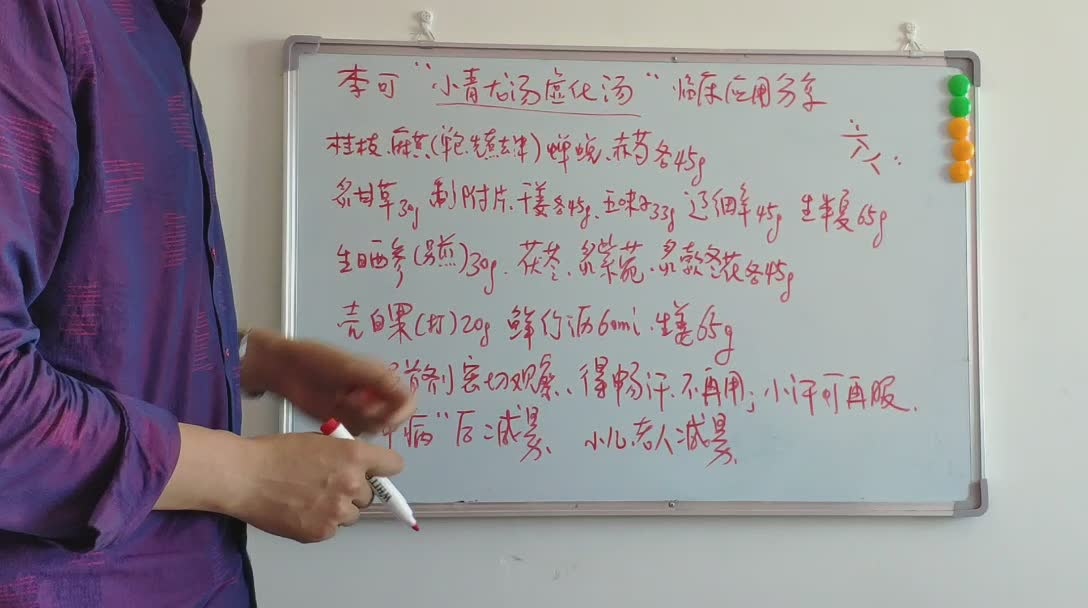 李可“小青龙汤虚化汤”临床应用分享
桂枝.麻黄(单包先煎去沫)蝉蜕.赤芍各45g
炙甘草30g 制附片.干姜各45g.五味子33g 辽细辛45g 生半夏65g
生晒参(另煎)30g.茯苓.炙紫菀.炙款冬花各45g
壳白果(打)20g 鲜竹沥60ml.生姜65g
首剂密切观察、得畅汗.不再用;小汗可再服.
病”后减量、 小儿.老人减量、
WHITE